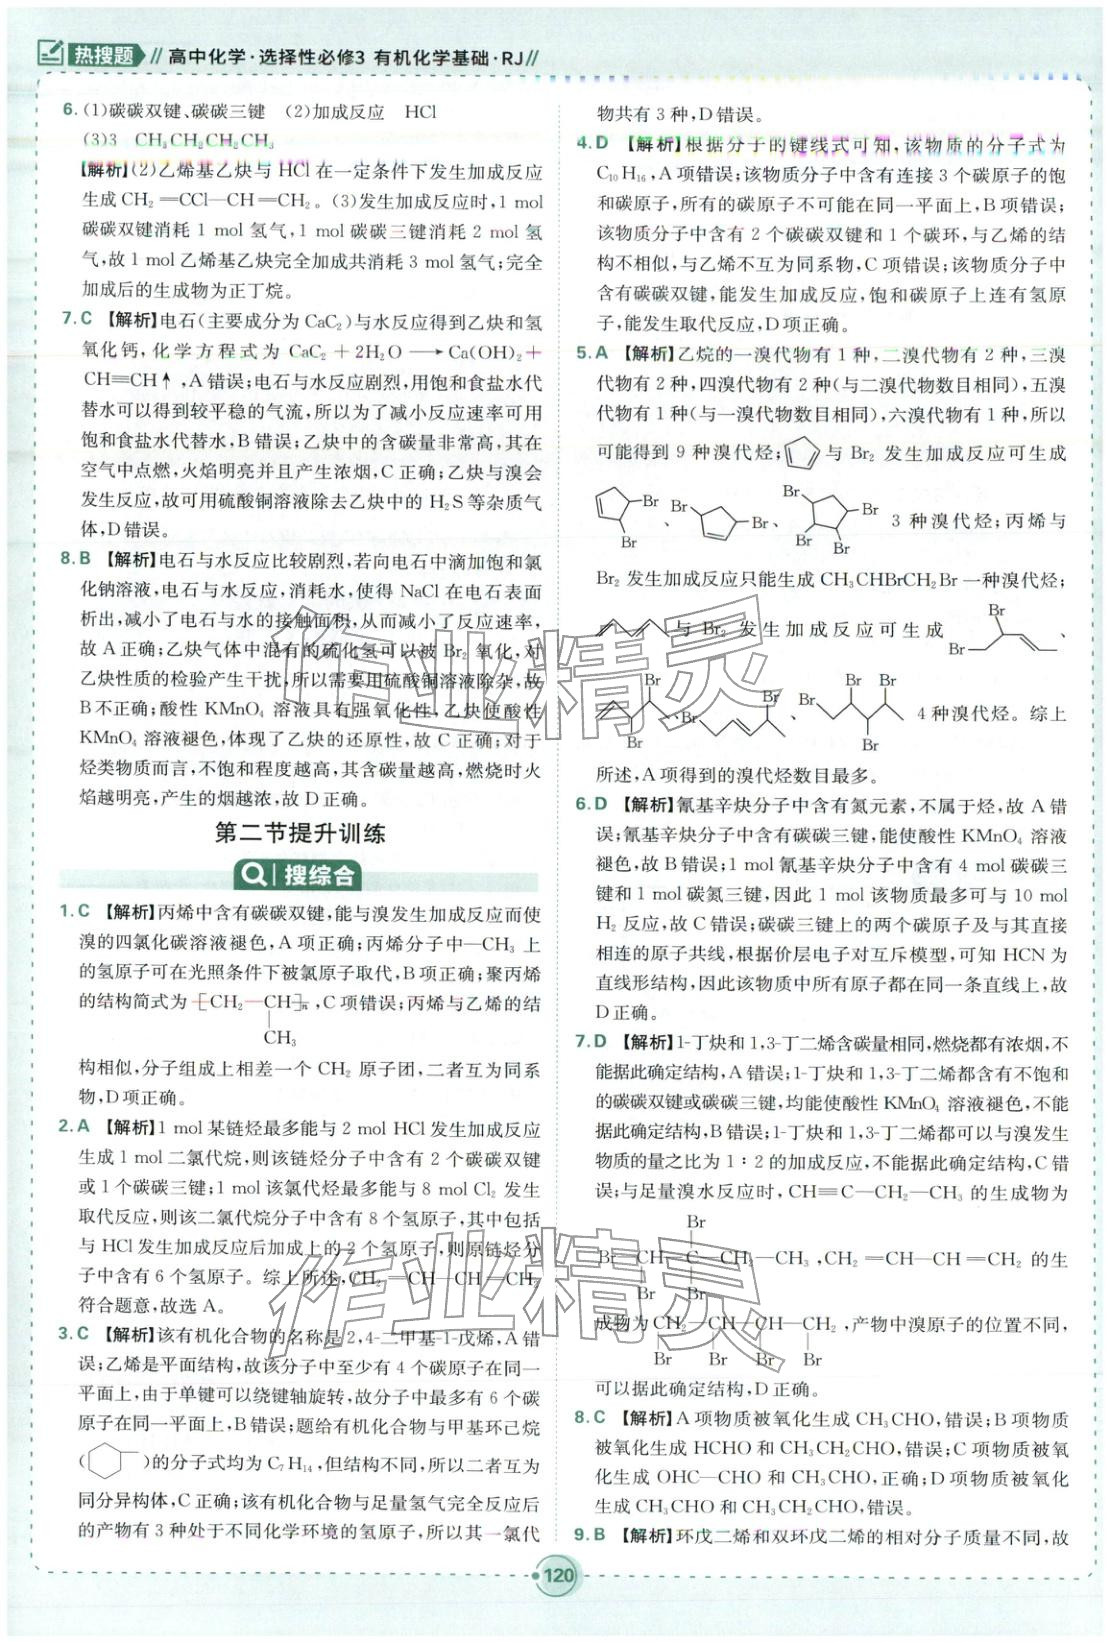 热搜题 // 高中化学·选择性必修3 有机化学基础·RJ//
6. (1)碳碳双键、碳碳三键 (2)加成反应 HCl
(3)3 CH₃CH₂CH₂CH₃
【解析】(2)乙烯基乙炔与 HCl 在一定条件下发生加成反应
生成 CH₂=CCl—CH=CH₂。(3)发生加成反应时,1 mol
碳碳双键消耗 1 mol 氢气,1 mol 碳碳三键消耗 2 mol 氢
气,故 1 mol 乙烯基乙炔完全加成共消耗 3 mol 氢气;完全
加成后的生成物为正丁烷。
7. C 【解析】电石(主要成分为 CaC₂)与水反应得到乙炔和氢
氧化钙,化学方程式为 CaC₂+2H₂O→Ca(OH)₂+
CH≡CH↑,A 错误;电石与水反应剧烈,用饱和食盐水代
替水可以得到较平稳的气流,所以为了减小反应速率可用
饱和食盐水代替水,B 错误;乙炔中的含碳量非常高,其在
空气中点燃,火焰明亮并且产生浓烟,C 正确;乙炔与溴会
发生反应,故可用硫酸铜溶液除去乙炔中的 H₂S 等杂质气
体,D 错误。
8. B 【解析】电石与水反应比较剧烈,若向电石中滴加饱和氯
化钠溶液,电石与水反应,消耗水,使得 NaCl 在电石表面
析出,减小了电石与水的接触面积,从而减小了反应速率,
故 A 正确;乙炔气体中混有的硫化氢可以被 Br₂ 氧化,对
乙炔性质的检验产生干扰,所以需要用硫酸铜溶液除杂,故
B 不正确;酸性 KMnO₄ 溶液具有强氧化性,乙炔使酸性
KMnO₄ 溶液褪色,体现了乙炔的还原性,故 C 正确;对于
烃类物质而言,不饱和程度越高,其含碳量越高,燃烧时火
焰越明亮,产生的烟越浓,故 D 正确。
第二节提升训练
搜综合
1. C 【解析】丙烯中含有碳碳双键,能与溴发生加成反应而使
溴的四氯化碳溶液褪色,A 项正确;丙烯分子中—CH₃ 上
的氢原子可在光照条件下被氯原子取代,B 项正确;聚丙烯
的结构简式为 ⁅CH₂—CH⁆ₙ,C 项错误;丙烯与乙烯的结
CH₃
构相似,分子组成上相差一个 CH₂ 原子团,二者互为同系
物,D 项正确。
2. A 【解析】1 mol 某链烃最多能与 2 mol HCl 发生加成反应
生成 1 mol 二氯代烷,则该链烃分子中含有 2 个碳碳双键
或 1 个碳碳三键;1 mol 该氯代烃最多能与 8 mol Cl₂ 发生
取代反应,则该二氯代烷分子中含有 8 个氢原子,其中包括
与 HCl 发生加成反应后加成上的 2 个氢原子,则原链烃分
子中含有 6 个氢原子。综上所述,CH₂=CH—CH=CH₂
符合题意,故选 A。
3. C 【解析】该有机化合物的名称是 2,4-二甲基-1-戊烯,A 错
误;乙烯是平面结构,故该分子中至少有 4 个碳原子在同一
平面上,由于单键可以绕键轴旋转,故分子中最多有 6 个碳
原子在同一平面上,B 错误;题给有机化合物与甲基环己烷
( )的分子式均为 C₇H₁₄,但结构不同,所以二者互为
同分异构体,C 正确;该有机化合物与足量氢气完全反应后
的产物有 3 种处于不同化学环境的氢原子,所以其一氯代
物共有 3 种,D 错误。
4. D 【解析】根据分子的键线式可知,该物质的分子式为
C₁₀H₁₆,A 项错误;该物质分子中含有连接 3 个碳原子的饱
和碳原子,所有的碳原子不可能在同一平面上,B 项错误;
该物质分子中含有 2 个碳碳双键和 1 个碳环,与乙烯的结
构不相似,与乙烯不互为同系物,C 项错误;该物质分子中
含有碳碳双键,能发生加成反应,饱和碳原子上连有氢原
子,能发生取代反应,D 项正确。
5. A 【解析】乙烷的一溴代物有 1 种,二溴代物有 2 种,三溴
代物有 2 种,四溴代物有 2 种(与二溴代物数目相同),五溴
代物有 1 种(与一溴代物数目相同),六溴代物有 1 种,所以
可能得到 9 种溴代烃; 与 Br₂ 发生加成反应可生成
Br Br 、 Br Br 、 Br Br Br Br 3 种溴代烃;丙烯与
Br₂ 发生加成反应只能生成 CH₃CHBrCH₂Br 一种溴代烃;
与 Br₂ 发生加成反应可生成 Br Br 、
Br Br 、 Br Br 、 Br Br Br Br 4 种溴代烃。综上
所述,A 项得到的溴代烃数目最多。
6. D 【解析】氰基辛炔分子中含有氮元素,不属于烃,故 A 错
误;氰基辛炔分子中含有碳碳三键,能使酸性 KMnO₄ 溶液
褪色,故 B 错误;1 mol 氰基辛炔分子中含有 4 mol 碳碳三
键和 1 mol 碳氮三键,因此 1 mol 该物质最多可与 10 mol
H₂ 反应,故 C 错误;碳碳三键上的两个碳原子及与其直接
相连的原子共线,根据价层电子对互斥模型,可知 HCN 为
直线形结构,因此该物质中所有原子都在同一条直线上,故
D 正确。
7. D 【解析】1-丁炔和 1,3-丁二烯含碳量相同,燃烧都有浓烟,不
能据此确定结构,A 错误;1-丁炔和 1,3-丁二烯都含有不饱和
的碳碳双键或碳碳三键,均能使酸性 KMnO₄ 溶液褪色,不能
据此确定结构,B 错误;1-丁炔和 1,3-丁二烯都可以与溴发生
物质的量之比为 1∶2 的加成反应,不能据此确定结构,C 错
误;与足量溴水反应时,CH≡C—CH₂—CH₃ 的生成物为
Br
Br—CH—C—CH₂—CH₃,CH₂=CH—CH=CH₂ 的生
Br Br
成物为 CH₂—CH—CH—CH₂,产物中溴原子的位置不同,
Br Br Br Br
可以据此确定结构,D 正确。
8. C 【解析】A 项物质被氧化生成 CH₃CHO,错误;B 项物质
被氧化生成 HCHO 和 CH₃CH₂CHO,错误;C 项物质被氧
化生成 OHC—CHO 和 CH₃CHO,正确;D 项物质被氧化
生成 CH₃CHO 和 CH₃CH₂CHO,错误。
9. B 【解析】环戊二烯和双环戊二烯的相对分子质量不同,故
120
作业精灵
作业精灵